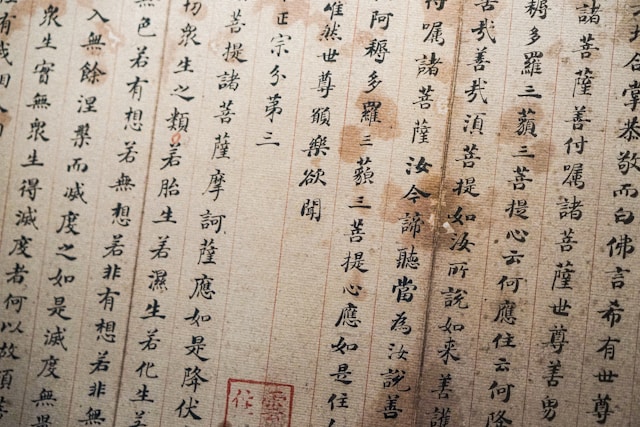 地合掌恭敬而白佛言希有世尊
諸菩薩善付囑諸菩薩世尊善男
耨多羅三藐三菩提心云何應住云何降
善哉善哉湏菩提如汝所說如来善護
付囑諸菩薩汝今諦聽當為汝說善
阿耨多羅三藐三菩提心應如是住
唯然世尊願樂欲聞
正宗分第三
菩提諸菩薩摩訶薩應如是降伏
切眾生之類若胎生若濕生若化生若
無色若有想若無想若非有想若非無
入無餘涅槃而滅度之如是滅度無量
眾生實無眾生得滅度者何以故湏菩
有我相人